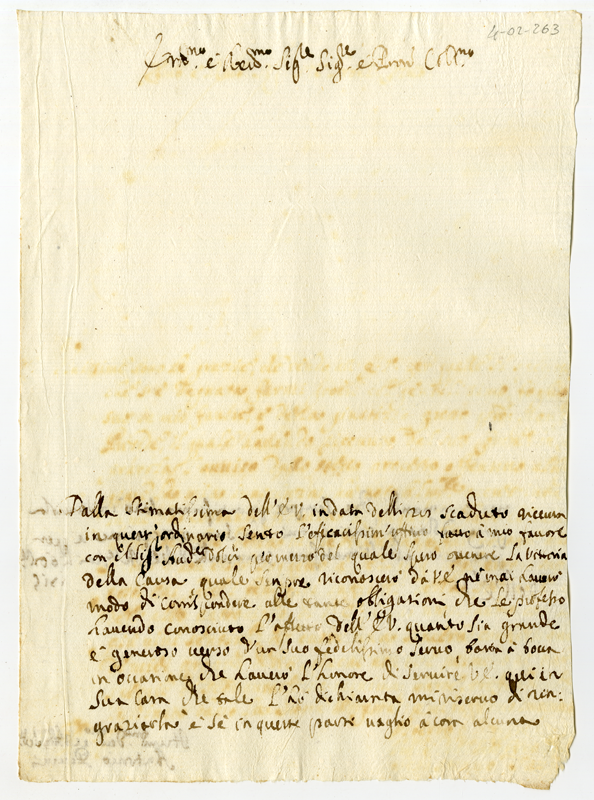 4-02-263
Em.mo e Rev.mo Sig.re Sig.re e Pron Coll.mo
Dalla stimatissima dell'E.V. in data delli scaduto ricevuta
in quest'ordinario sento l'eficacissim'uffitio fatto à mio favore
con il Sig.r Aud.re Dolci per mezzo del quale spero ottenere la vittoria
della Causa quale sempre riconoscerò da V.E. ne mai haverò
modo di corrispondere alle tante obligationi che le professo
havendo conosciuto l'affetto dell'E.V. quanto sia grande
e generoso verso d'un suo fedelissimo servo, basta à boca
in occasione che haverò l'honore di servire V.E. qui in
sua Casa che tale l'hò dichiarata mi riservo di rin:
gratiarla e se in queste parti vaglio à cosa alcuna